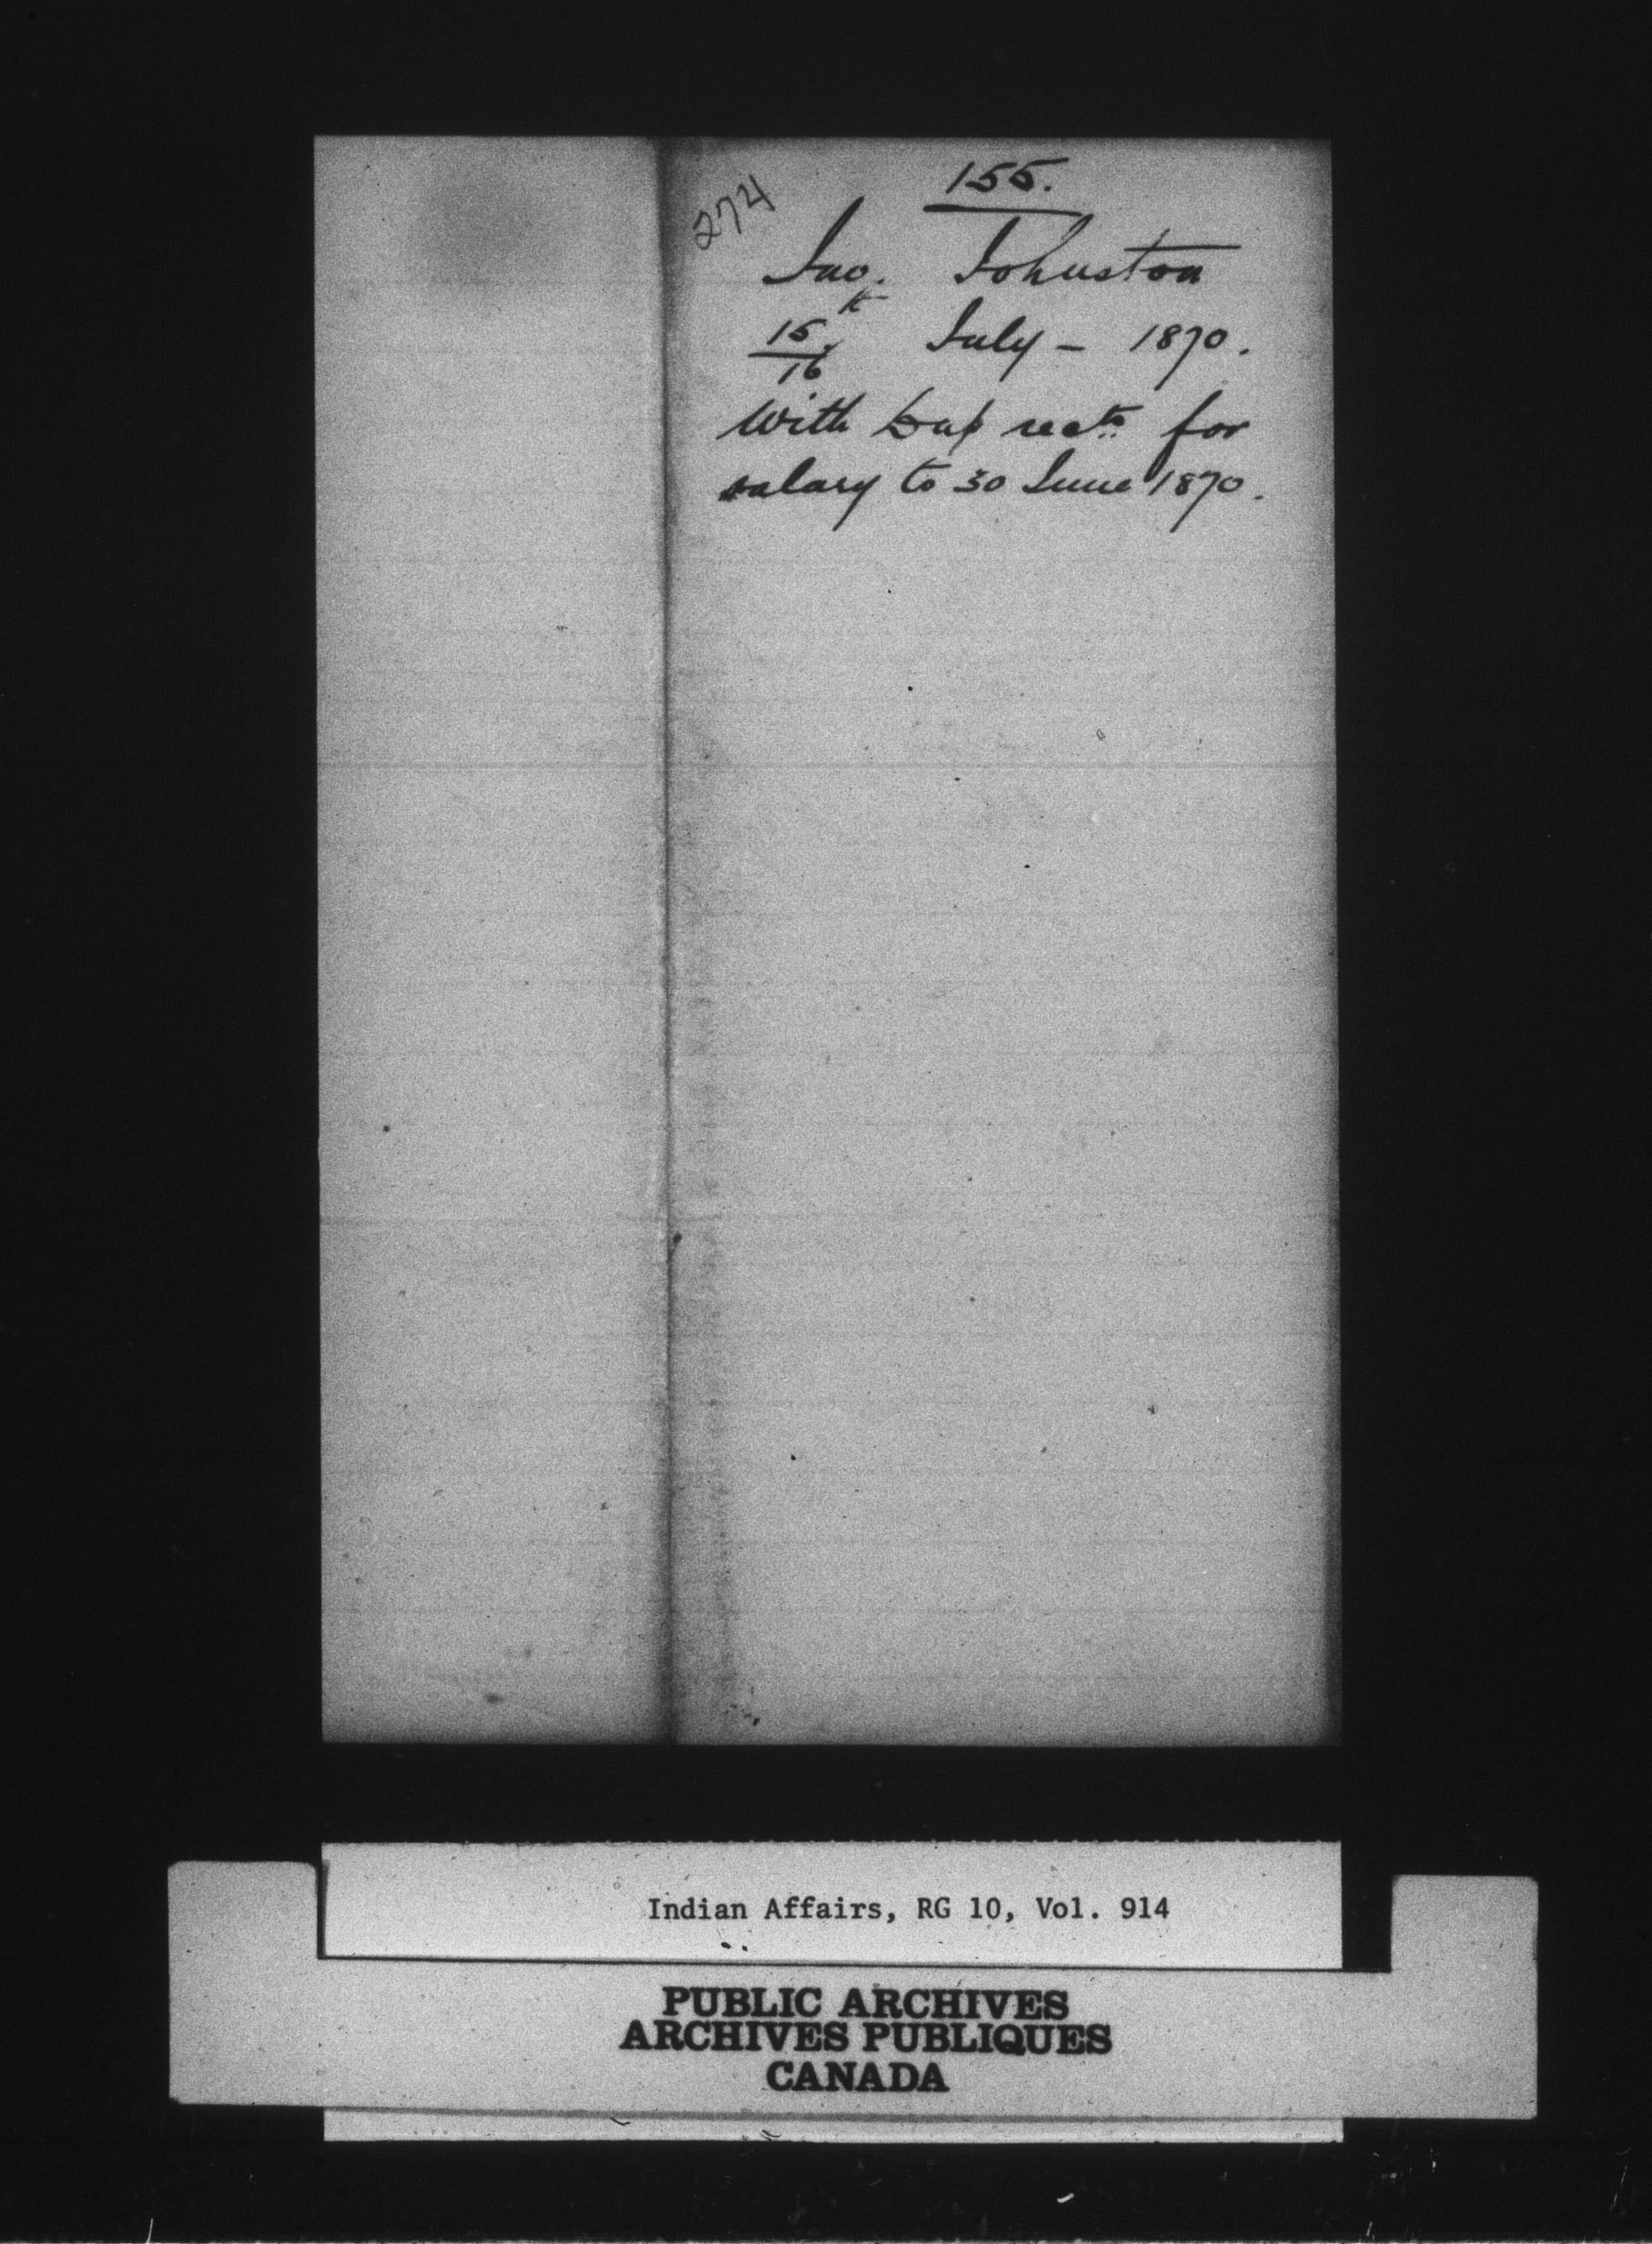 155.
274
Jno. Johnston
15th/16 July - 1870.
With Dup rects for
salary to 30 June 1870.
Indian Affairs, RG 10, Vol. 914
PUBLIC ARCHIVES
ARCHIVES PUBLIQUES
CANADA